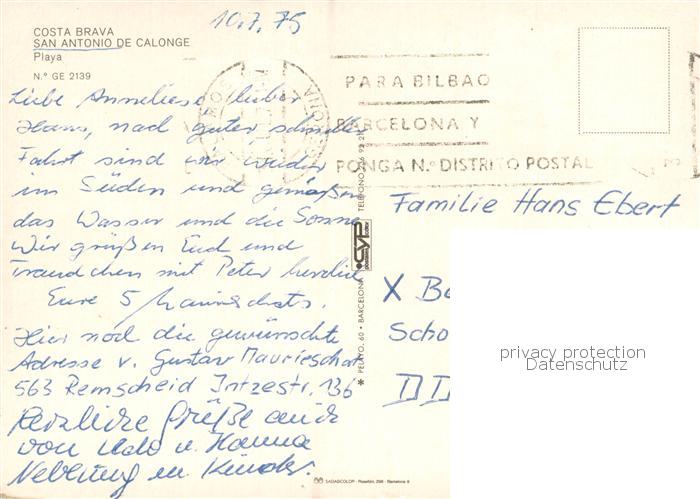 COSTA BRAVA
SAN ANTONIO DE CALONGE
Playa
N.º GE 2139
10.7.75
Liebe Anneliese, lieber
Hans, nach guter schneller
Fahrt sind wir wieder
im Süden und genießen
das Wasser und die Sonne
Wir grüßen Euch und
Traudchen mit Peter herzlich
Eure 5
Hier noch die gewünschte
Adresse v. Gustav
563 Remscheid Intzestr. 136
Herzliche Grüße auch
von Udo u. Hanna
u. Kinder.
PARA BILBAO
BARCELONA Y
PONGA N.º DISTRITO POSTAL
BARCELONA
TELEFONO
CYP
PELAYO, 60 • BARCELONA
Familie Hans Ebert
X
Scho
DD
privacy protection
Datenschutz